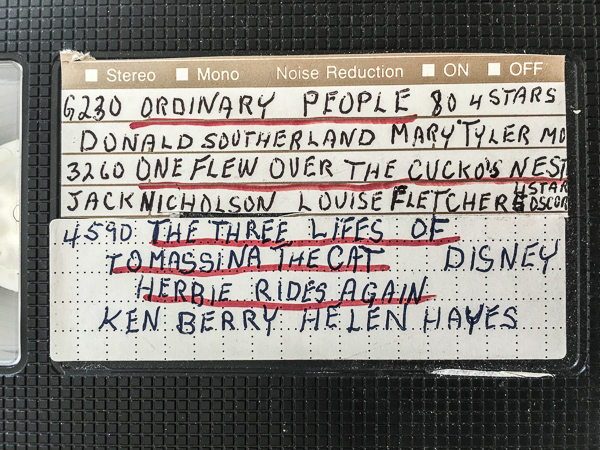 Stereo Mono Noise Reduction ON OFF
6230 ORDINARY PEOPLE 80 4 STARS
DONALD SOUTHERLAND MARY TYLER MO
3260 ONE FLEW OVER THE CUCKO'S NEST
JACK NICHOLSON LOUISE FLETCHER 4 STAR
4590 THE THREE LIFES OF
TOMASSINA THE CAT DISNEY
HERBIE RIDES AGAIN
KEN BERRY HELEN HAYES